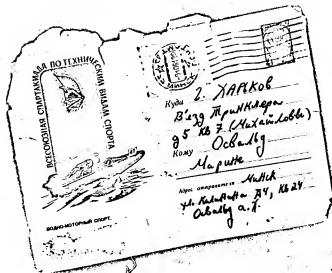 ВСЕСОЮЗНАЯ СПАРТАКИАДА ПО ТЕХНИЧЕСКИМ ВИДАМ СПОРТА
ВОДНО-МОТОРНЫЙ СПОРТ
Куда г. ХАРЬКОВ
В'езд Тринклера
д 5 кв 7 (Михайловы)
Кому Освальд
Марине
Адрес отправителя Минск
ул. Калинина д4, кв 24
Освальд А.